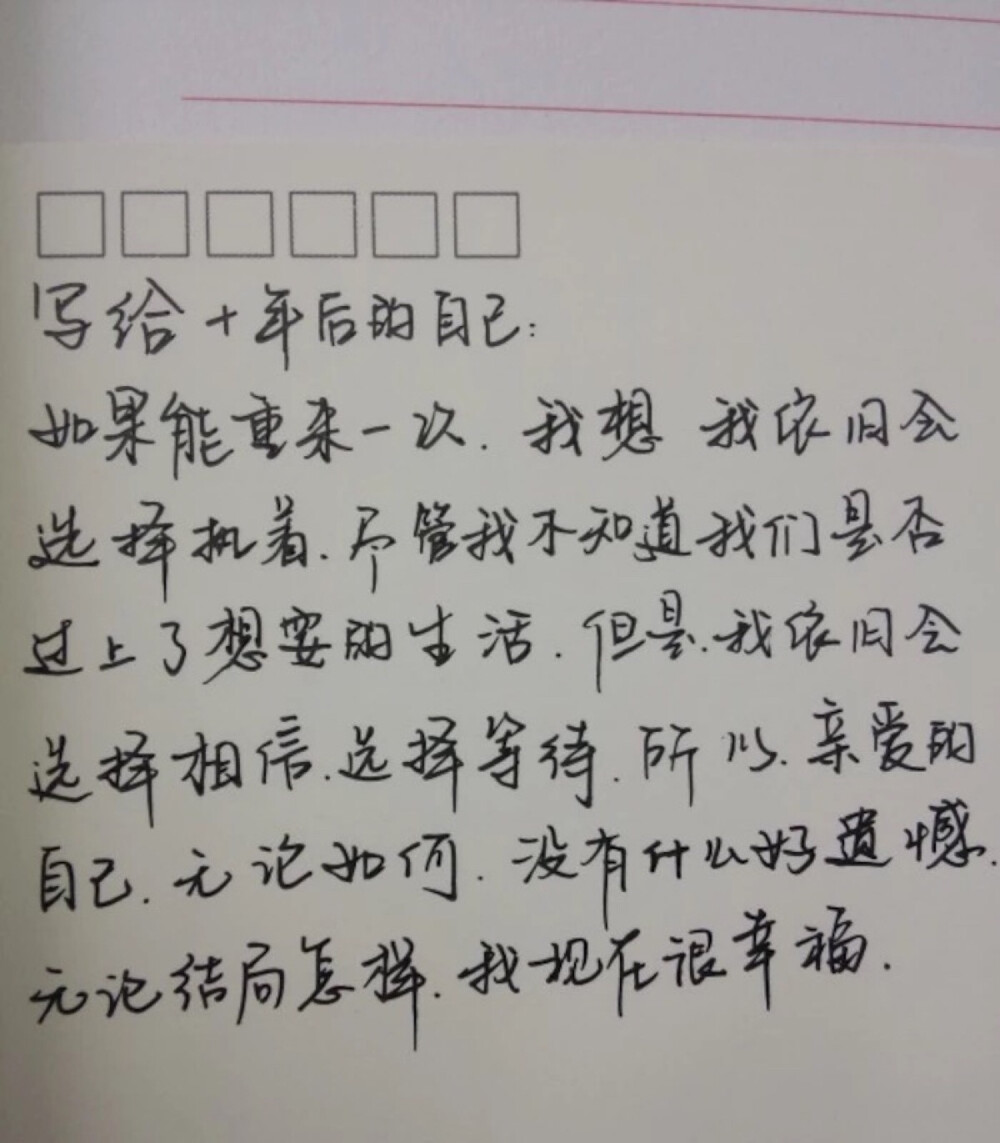 写给十年后的自己:
如果能重来一次.我想 我依旧会
选择执着.尽管我不知道我们是否
过上了想要的生活.但是.我依旧会
选择相信.选择等待.所以.亲爱的
自己.无论如何.没有什么好遗憾.
无论结局怎样.我现在很幸福.